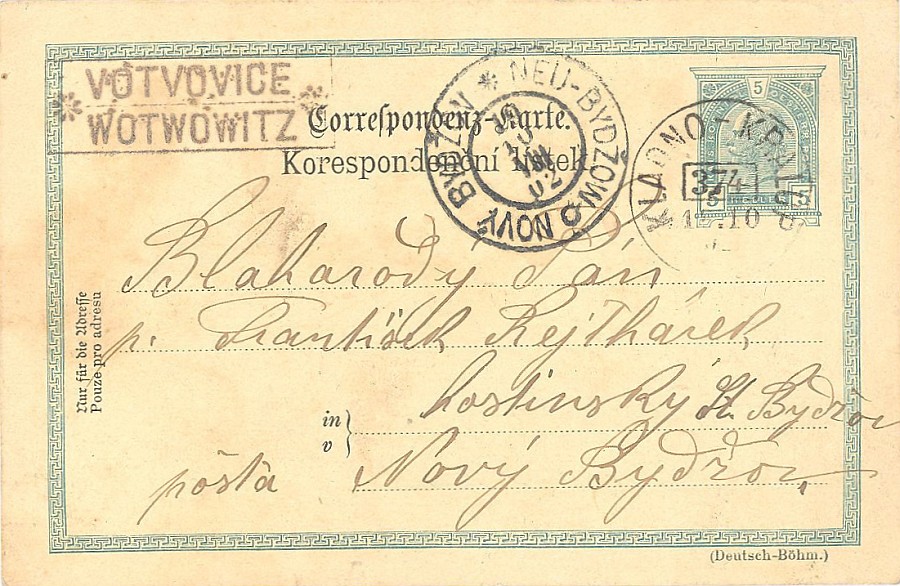 VOTVOVICE
WOTWOWITZ
Correspondenz-Karte.
Korespondenční lístek.
NEU-BYDŽOW
NOVÝ BYDŽOV
KLADNO-KRALUP
374
5
5 5
Nur für die Adresse
Pouze pro adresu
Blahorodý Pán
p. František Rejthárek
hostinský St. Bydžov
in
v
pošta Nový Bydžov
(Deutsch-Böhm.)